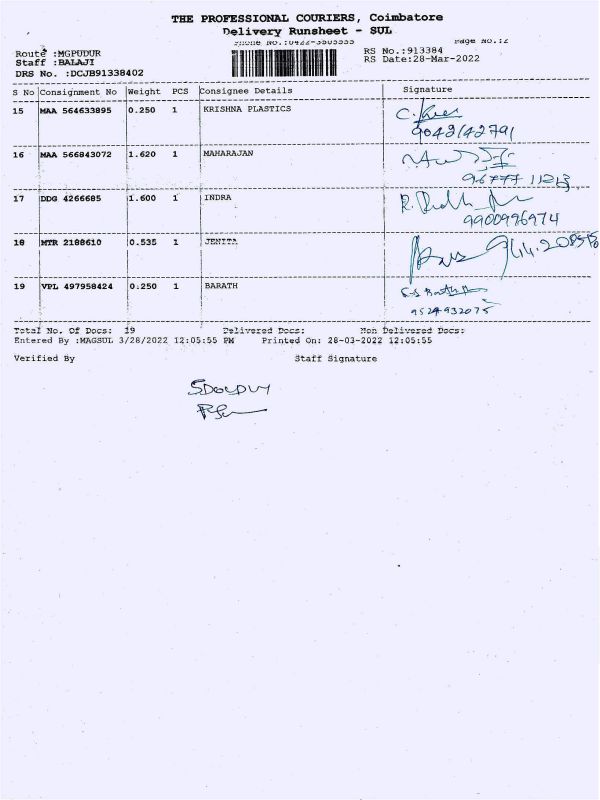 THE PROFESSIONAL COURIERS, Coimbatore
Delivery Runsheet - SUL
Phone No.:0422-3505555 Page No.:2
Route :MGPUDUR RS No.:913384
Staff :BALAJI RS Date:28-Mar-2022
DRS No. :DCJB91338402
S No Consignment No Weight PCS Consignee Details Signature
15 MAA 564633895 0.250 1 KRISHNA PLASTICS
9042142791
16 MAA 566843072 1.620 1 MAHARAJAN
96777 11213
17 DDG 4266685 1.600 1 INDRA
9900996974
18 MTR 2188610 0.535 1 JENITA
19 VPL 497958424 0.250 1 BARATH
9524932075
Total No. Of Docs: 19 Delivered Docs: Non Delivered Docs:
Entered By :MAGSUL 3/28/2022 12:05:55 PM Printed On: 28-03-2022 12:05:55
Verified By Staff Signature